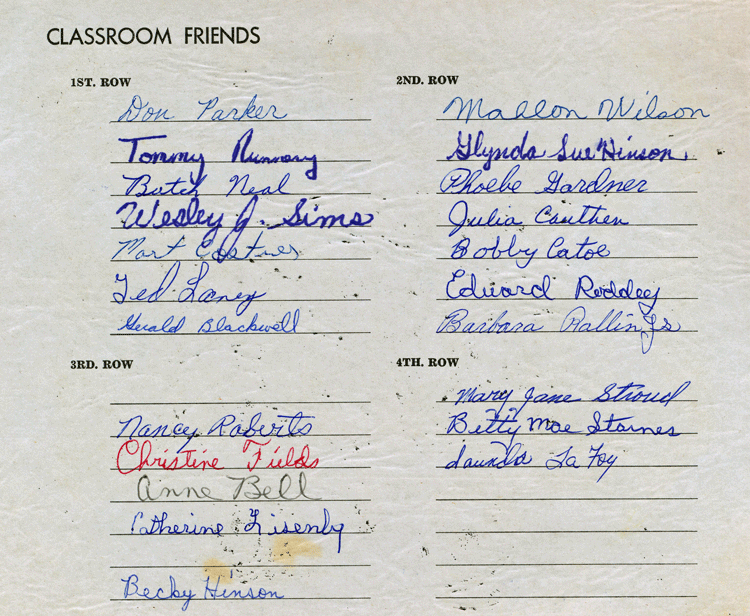 CLASSROOM FRIENDS
1ST. ROW
Don Parker
Tommy
Butch Neal
Wesley J. Sims
Mart
Ted Laney
Gerald Blackwell
2ND. ROW
Mallon Wilson
Glynda Sue Hinson
Phoebe Gardner
Julia Cauthen
Bobby Catoe
Edward Roddey
Barbara Rallings
3RD. ROW
Nancy Roberts
Christine Fields
Anne Bell
Catherine Lisenby
Becky Henson
4TH. ROW
Mary Jane Stroud
Betty Mae Starnes
La Foy